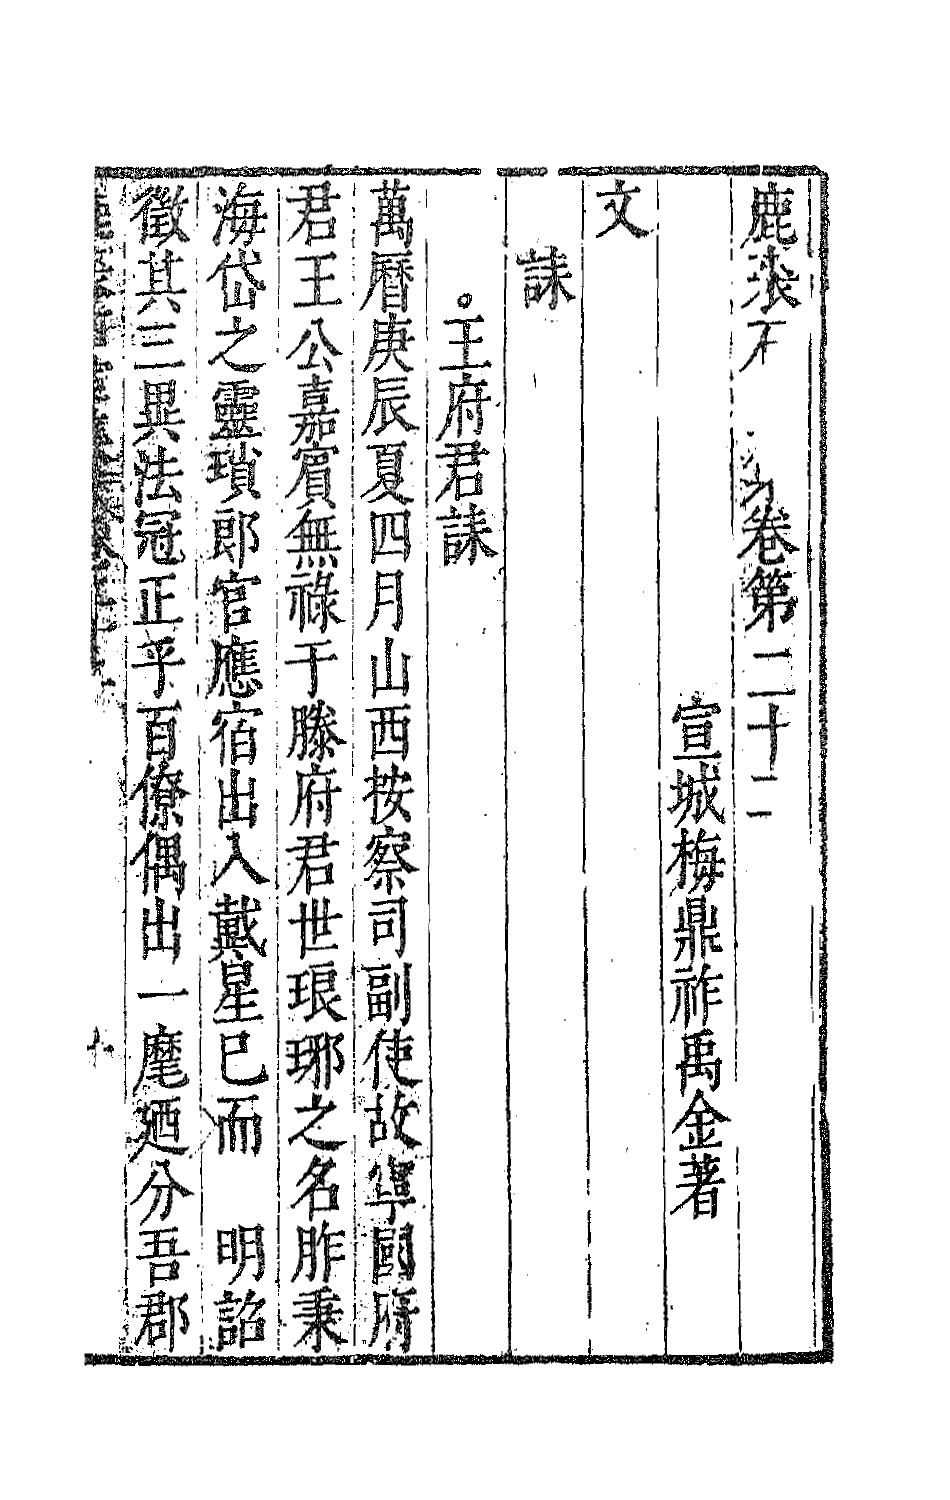 鹿裘　卷第二十二
宣城梅鼎祚禹金著
文
誄
。王府君誄
萬曆庚辰夏四月山西按察司副使故寧國府
君王公嘉賓無祿于滕府君世琅琊之名胙秉
海岱之靈瑣郎官應宿出入戴星已而　明詔
徵其三異法冠正乎百僚偶出一麾廼分吾郡